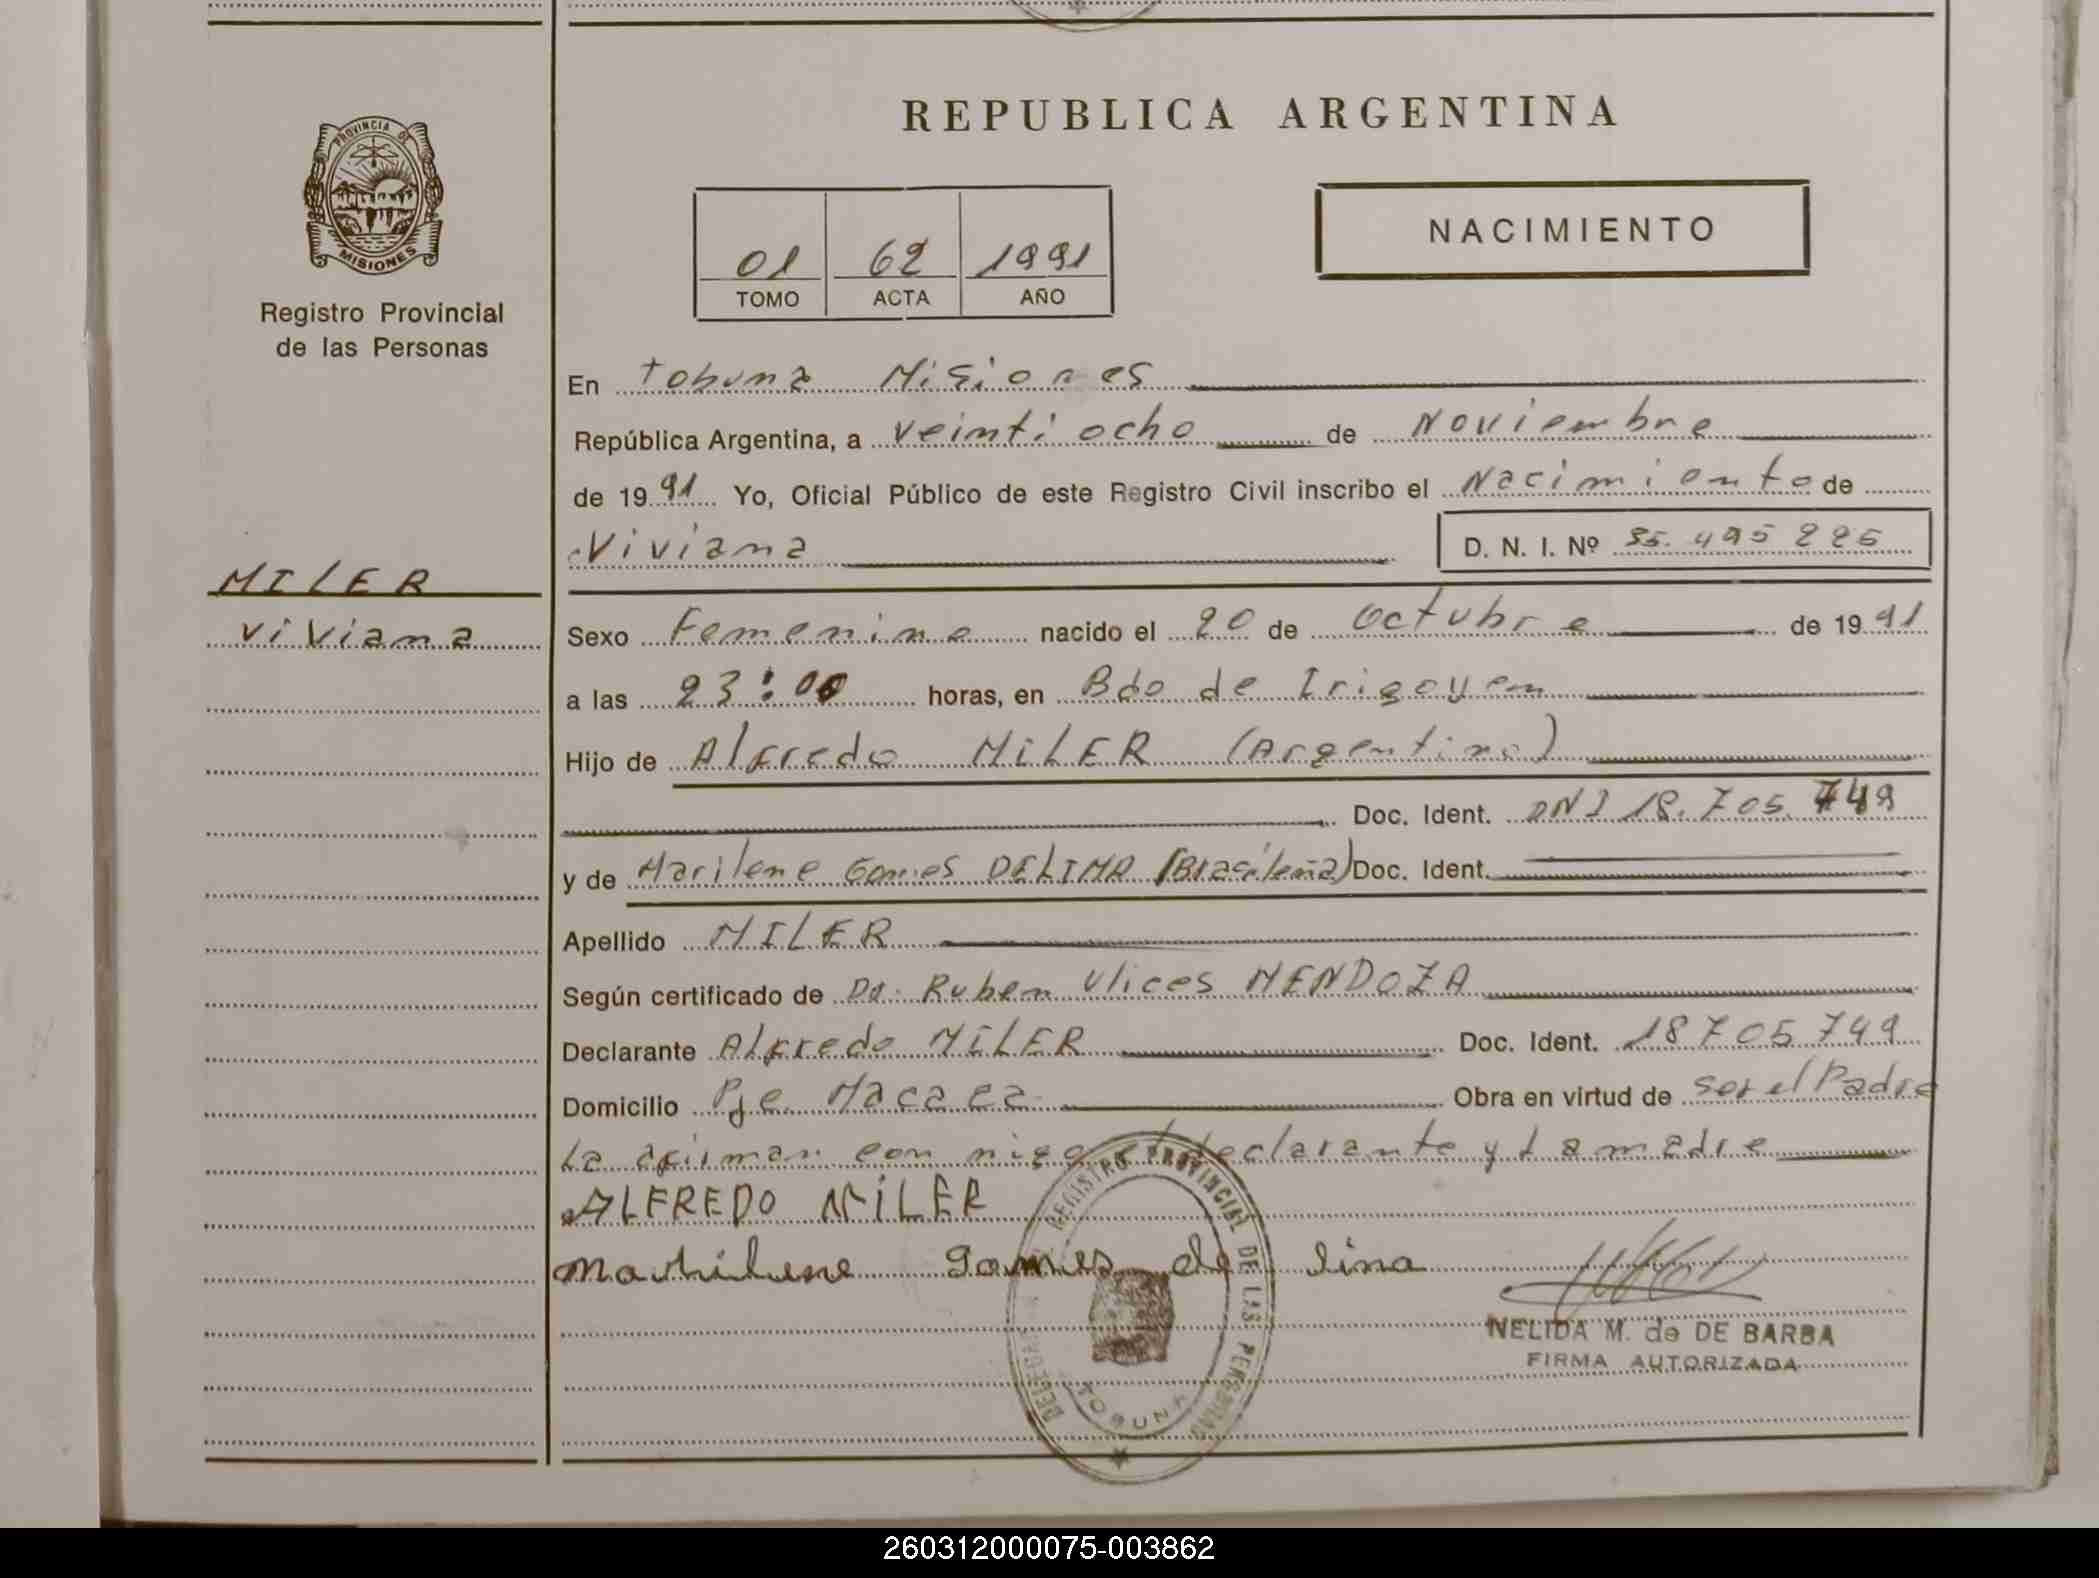 REPUBLICA ARGENTINA
PROVINCIA DE
MISIONES
Registro Provincial
de las Personas
NACIMIENTO
01 62 1991
TOMO ACTA AÑO
En Tobuna Misiones
República Argentina, a veinti ocho de Noviembre
de 1991 Yo, Oficial Público de este Registro Civil inscribo el Nacimiento de
Viviana D. N. I. Nº 35.495226
MILER
Viviana
Sexo Femenino nacido el 20 de Octubre de 1991
a las 23:00 horas, en Bdo de Irigoyen
Hijo de Alfredo MiLER (Argentino)
Doc. Ident. DNI 18.705.749
y de Marilene Gomes DELIMA (Brasileña) Doc. Ident.
Apellido MILER
Según certificado de Dr. Ruben Ulices MENDOZA
Declarante Alfredo MiLER Doc. Ident. 18705749
Domicilio Pje Macaca Obra en virtud de ser el Padre
La firman con migo el declarante y La madre
ALFREDO MiLER
Marhilene Gomes de lima
DELEGACION REGISTRO PROVINCIAL DE LAS PERSONAS
TOBUNA
NELIDA M. de DE BARBA
FIRMA AUTORIZADA
260312000075-003862